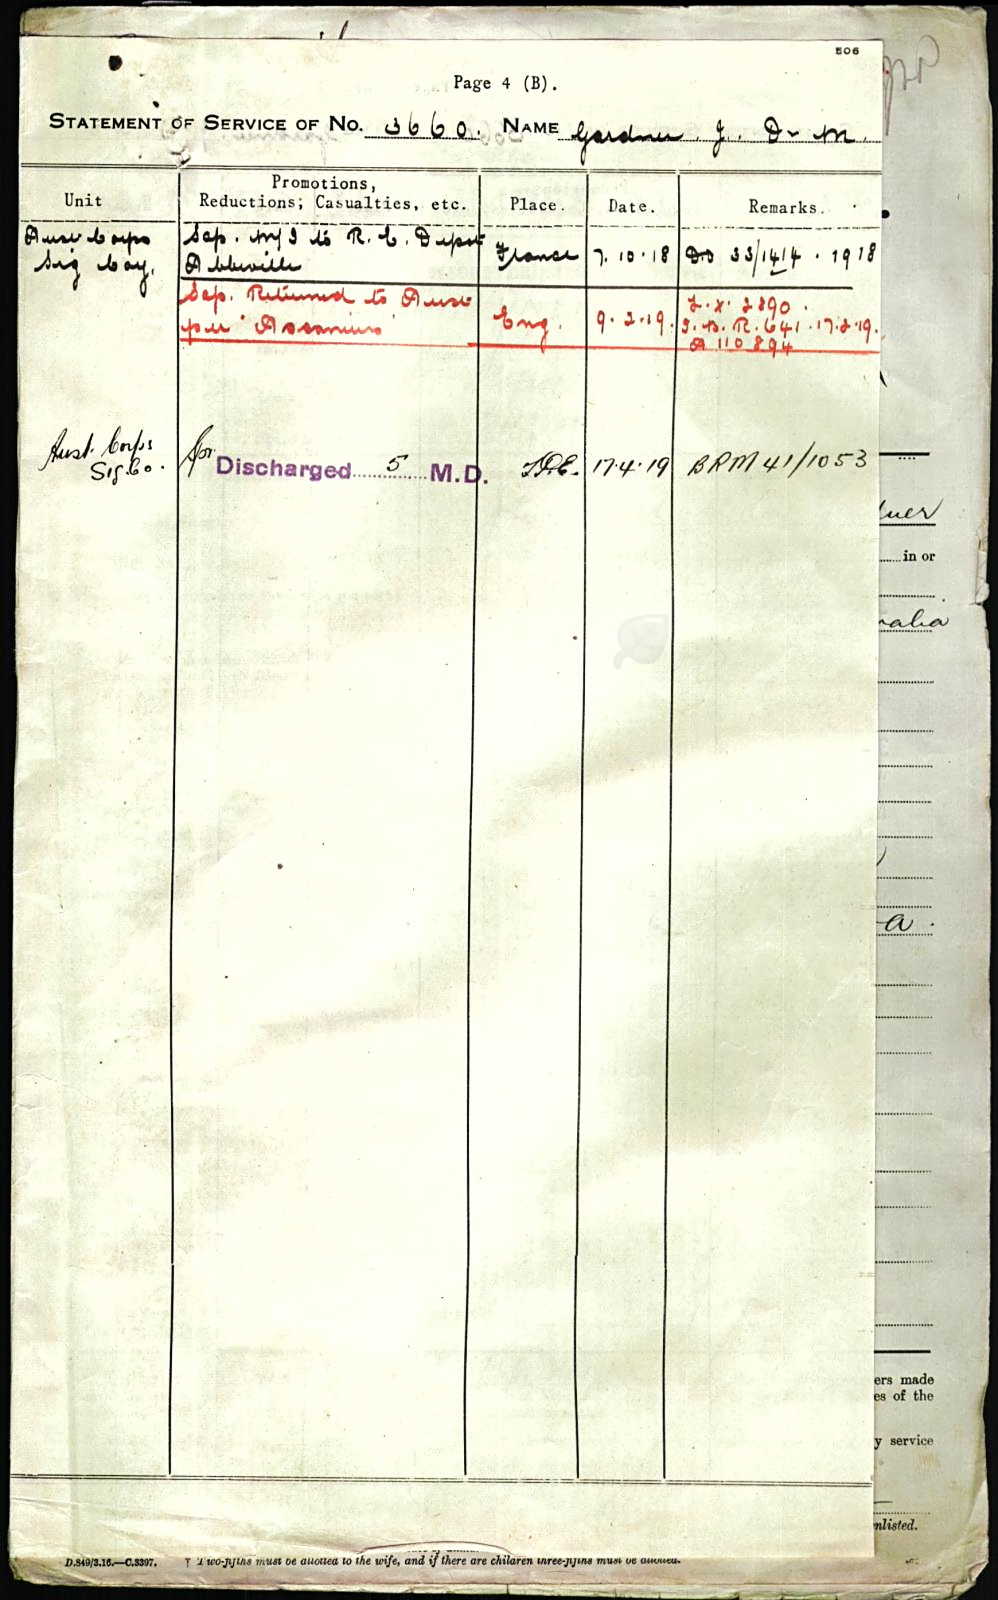 506
Page 4 (B).
STATEMENT OF SERVICE OF No. 3660. NAME Gardner J. D- M.
Unit
Promotions, Reductions; Casualties, etc.
Place.
Date.
Remarks.
Aust Corps Sap. to R. C. Depot France 7.10.18 DO 33/1414. 1918
Sig Coy. Abbeville
Sap. Returned to Aust
per "Ascanius" Eng. 9.2.19. I.B.R. 641. 17.2.19.
A 110894
Aust. Corps Spr. Discharged 5 M.D. 17.4.19 BRM 41/1053
Sig Co.
in or
ers made
es of the
y service
nlisted.
D.849/3.16.—C.3397. † Two-fifths must be allotted to the wife, and if there are children three-fifths must be allotted.